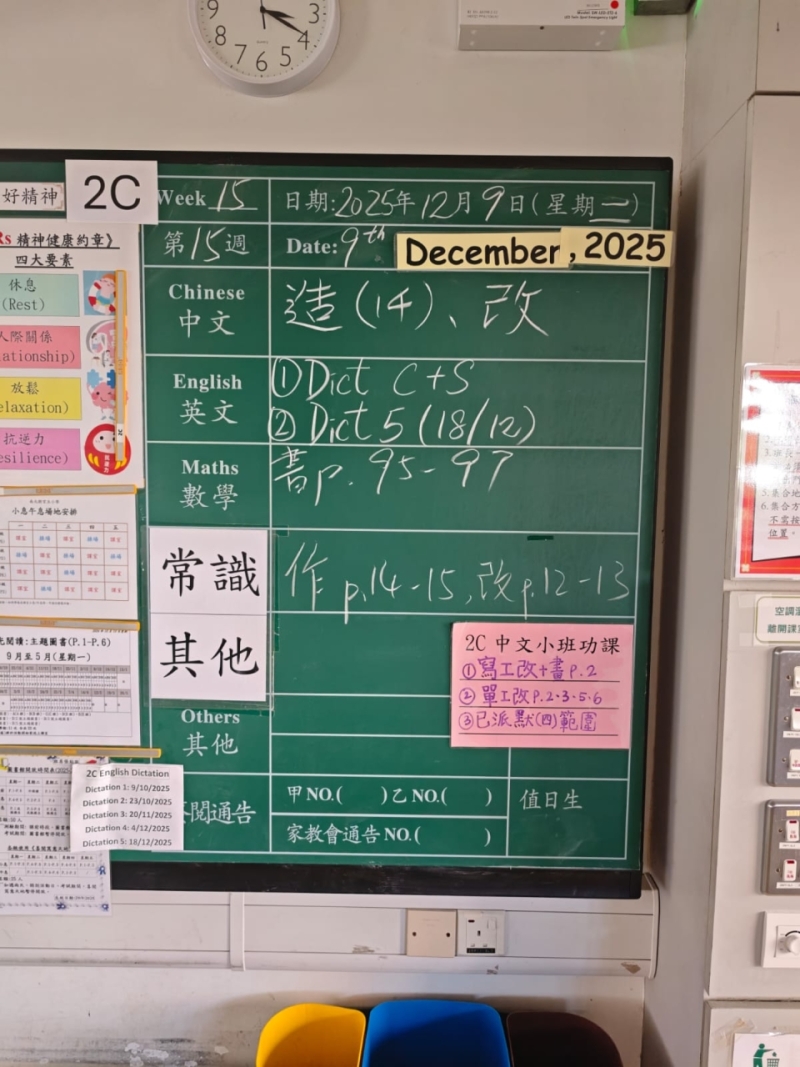 9 8 7 6 5 4 3
好精神
2C
Week 15
日期:2025年12月9日(星期二)
第15週
Date: 9th December, 2025
Rs 精神健康約章》
四大要素
休息
(Rest)
人際關係
ationship)
放鬆
elaxation)
抗逆力
esilience)
Chinese
中文
造(14)、改
English
英文
① Dict C+S
② Dict 5 (18/12)
Maths
數學
書p. 95-97
常識
作 p.14-15,改p.12-13
其他
2C 中文小班功課
①寫工改+書P.2
②單工改P.2·3·5·6
③已派默(四)範圍
Others
其他
閱通告
甲NO.( )乙NO.( )
家教會通告NO.( )
值日生
小息午息場地安排
一 二 三 四 五
光閱讀:主題圖書(P.1-P.6)
9月至5月(星期一)
2C English Dictation
Dictation 1: 9/10/2025
Dictation 2: 23/10/2025
Dictation 3: 20/11/2025
Dictation 4: 4/12/2025
Dictation 5: 18/12/2025
5.集合地
6.集合方
不需按
位置。
空調
離開課